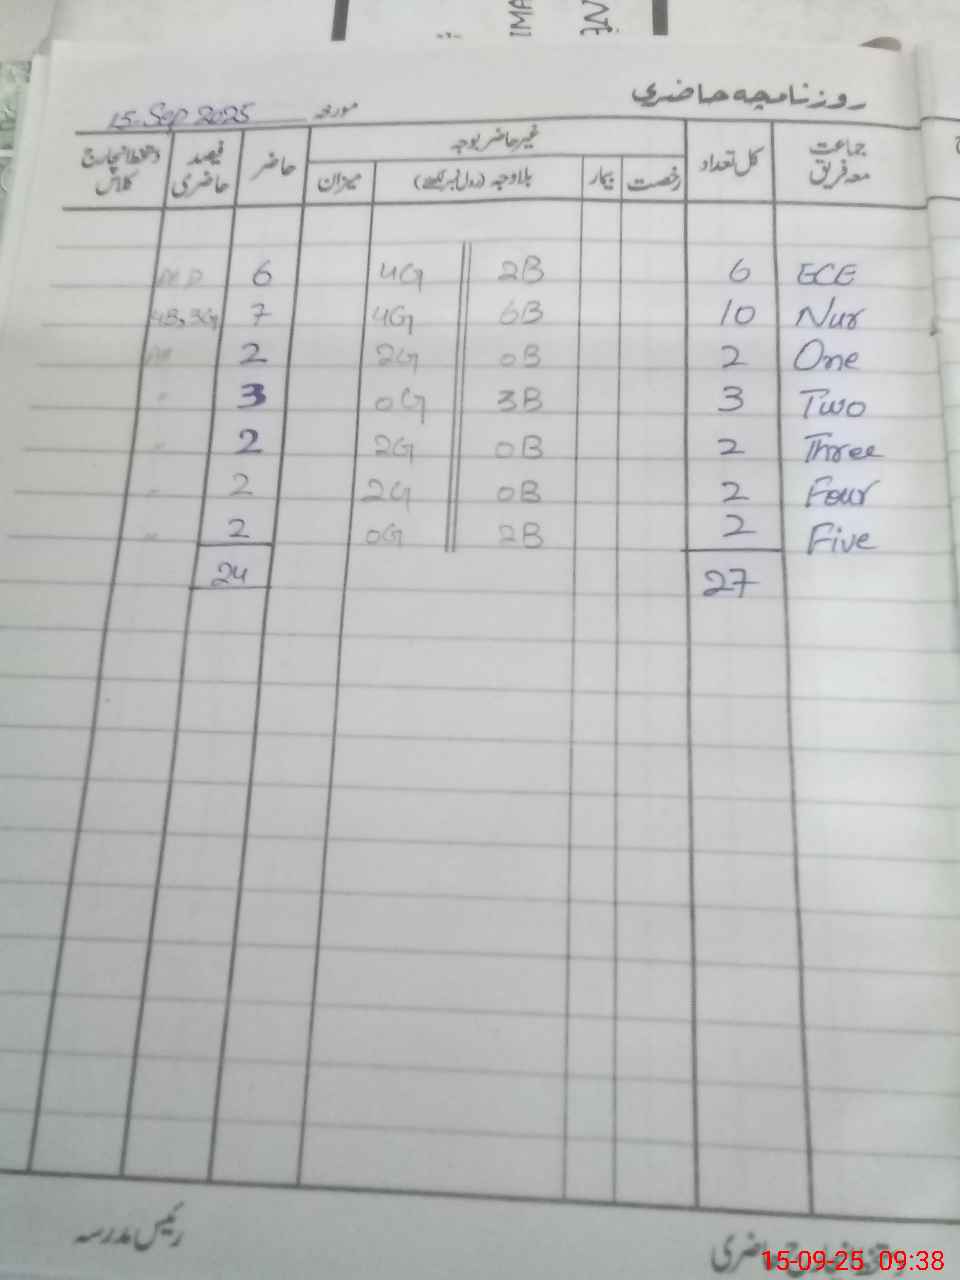 روزنامچہ حاضری
مورخہ 15-Sep 2025
جماعت معہ فریق کل تعداد غیر حاضر بوجہ حاضر فیصد حاضری دستخط انچارج کلاس
رخصت بیمار بلاوجہ (رول نمبر لکھیے) میزان
ECE 6 2B 4G 6
Nur 10 6B 4G 7 4B, 3G
One 2 0B 2G 2
Two 3 3B 0G 3 "
Three 2 0B 2G 2 "
Four 2 0B 2G 2 "
Five 2 2B 0G 2 "
27 24
رئیس مدرسہ
15-09-25 09:38